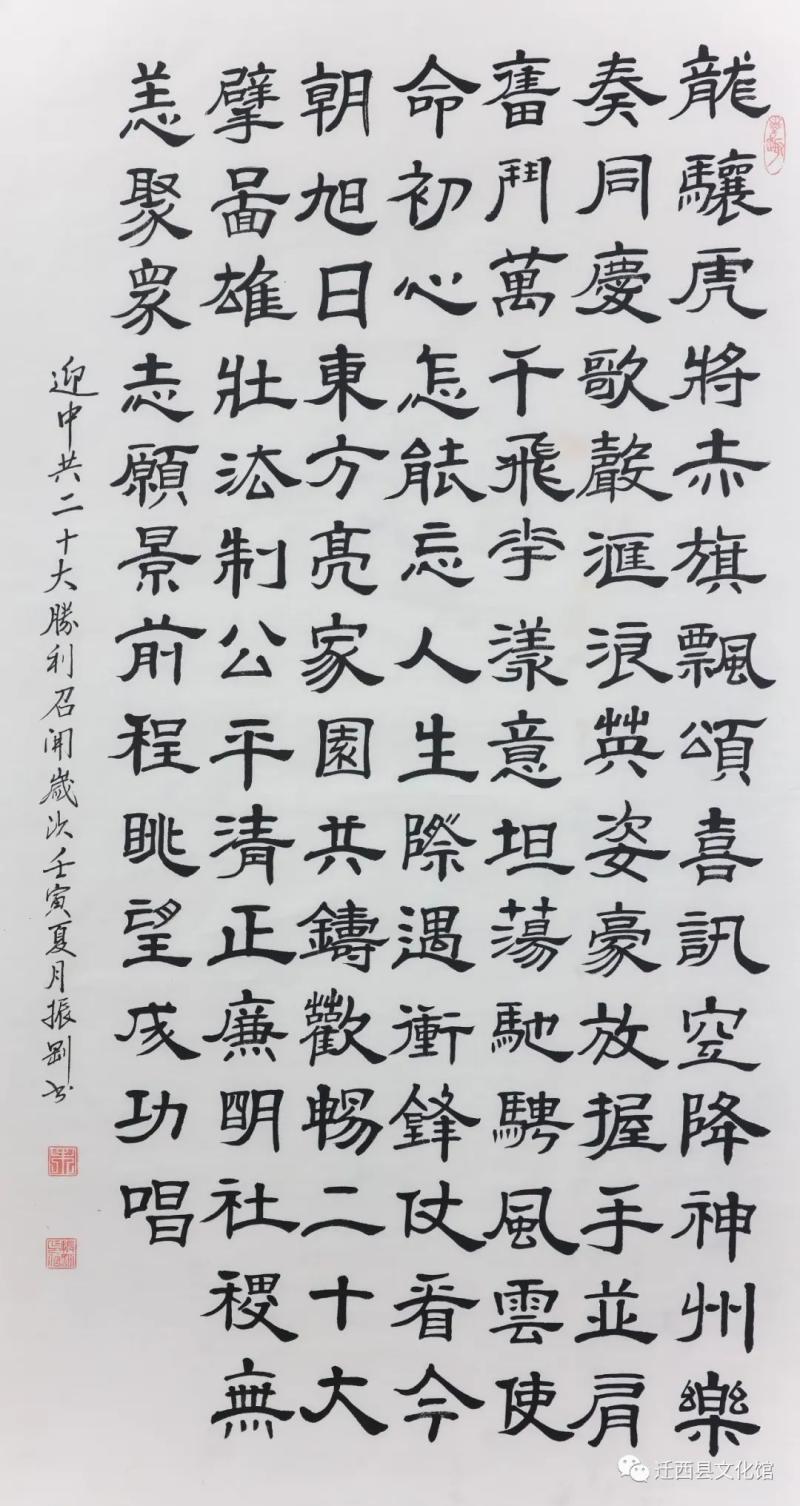 龍驤虎將赤旗飄頌喜訊空降神州樂
奏同慶歌聲滙浪英姿豪放握手並肩
奮鬥萬千飛学漾意坦蕩馳騁風雲使
命初心怎能忘人生際遇衝鋒仗看今
朝旭日東方亮家園共鑄歡暢二十大
擘圖雄壯法制公平清正廉明社稷無
恙聚衆志願景前程眺望成功唱
迎中共二十大勝利召開歲次壬寅夏月振剛书
迁西县文化馆